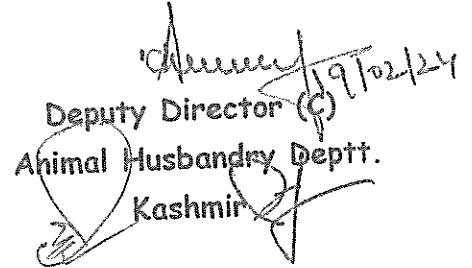 19/02/24
Deputy Director (C)
Animal Husbandry Deptt.
Kashmir